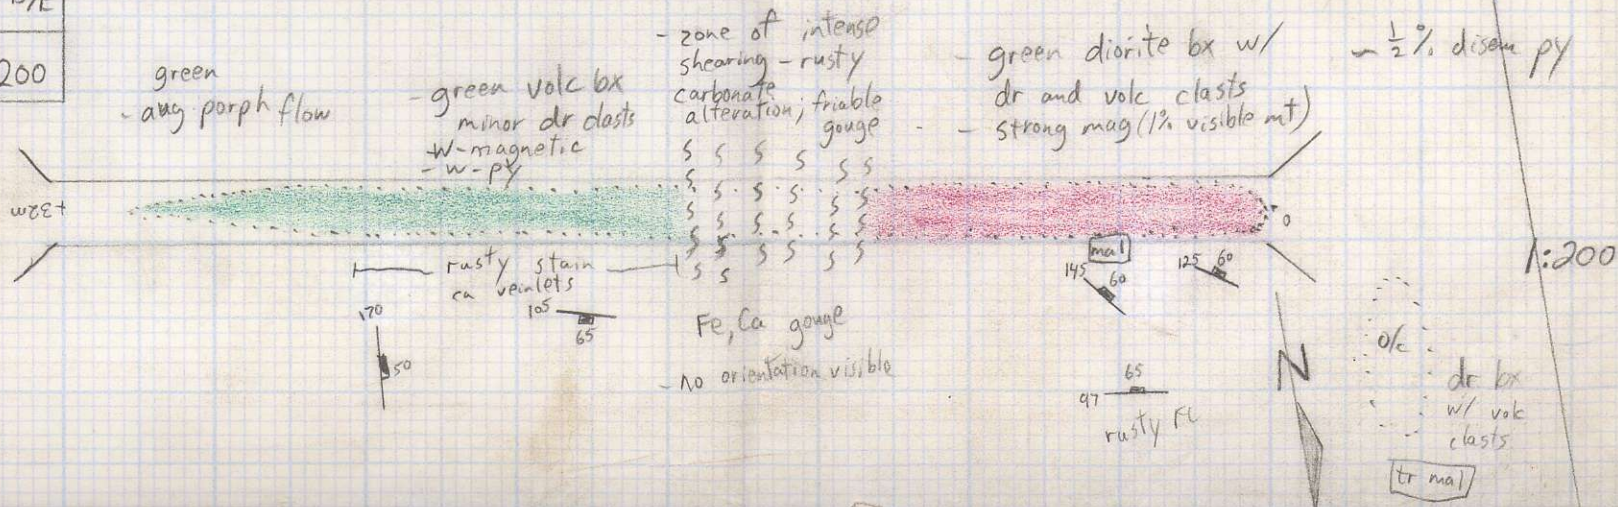 200
green
- aug porph flow
- green volc bx
minor dr clasts
-w-magnetic
- w-py
- zone of intense
shearing - rusty
carbonate
alteration; friable
gouge
- green diorite bx w/
dr and volc clasts
- strong mag (1% visible mt)
- ½% dissem py
+32m
0
rusty stain
ca veinlets
170
50
105
65
Fe, Ca gouge
- no orientation visible
mal
145
60
125
60
65
97
rusty
N
1:200
o/c
dr bx
w/ volc
clasts
tr mal